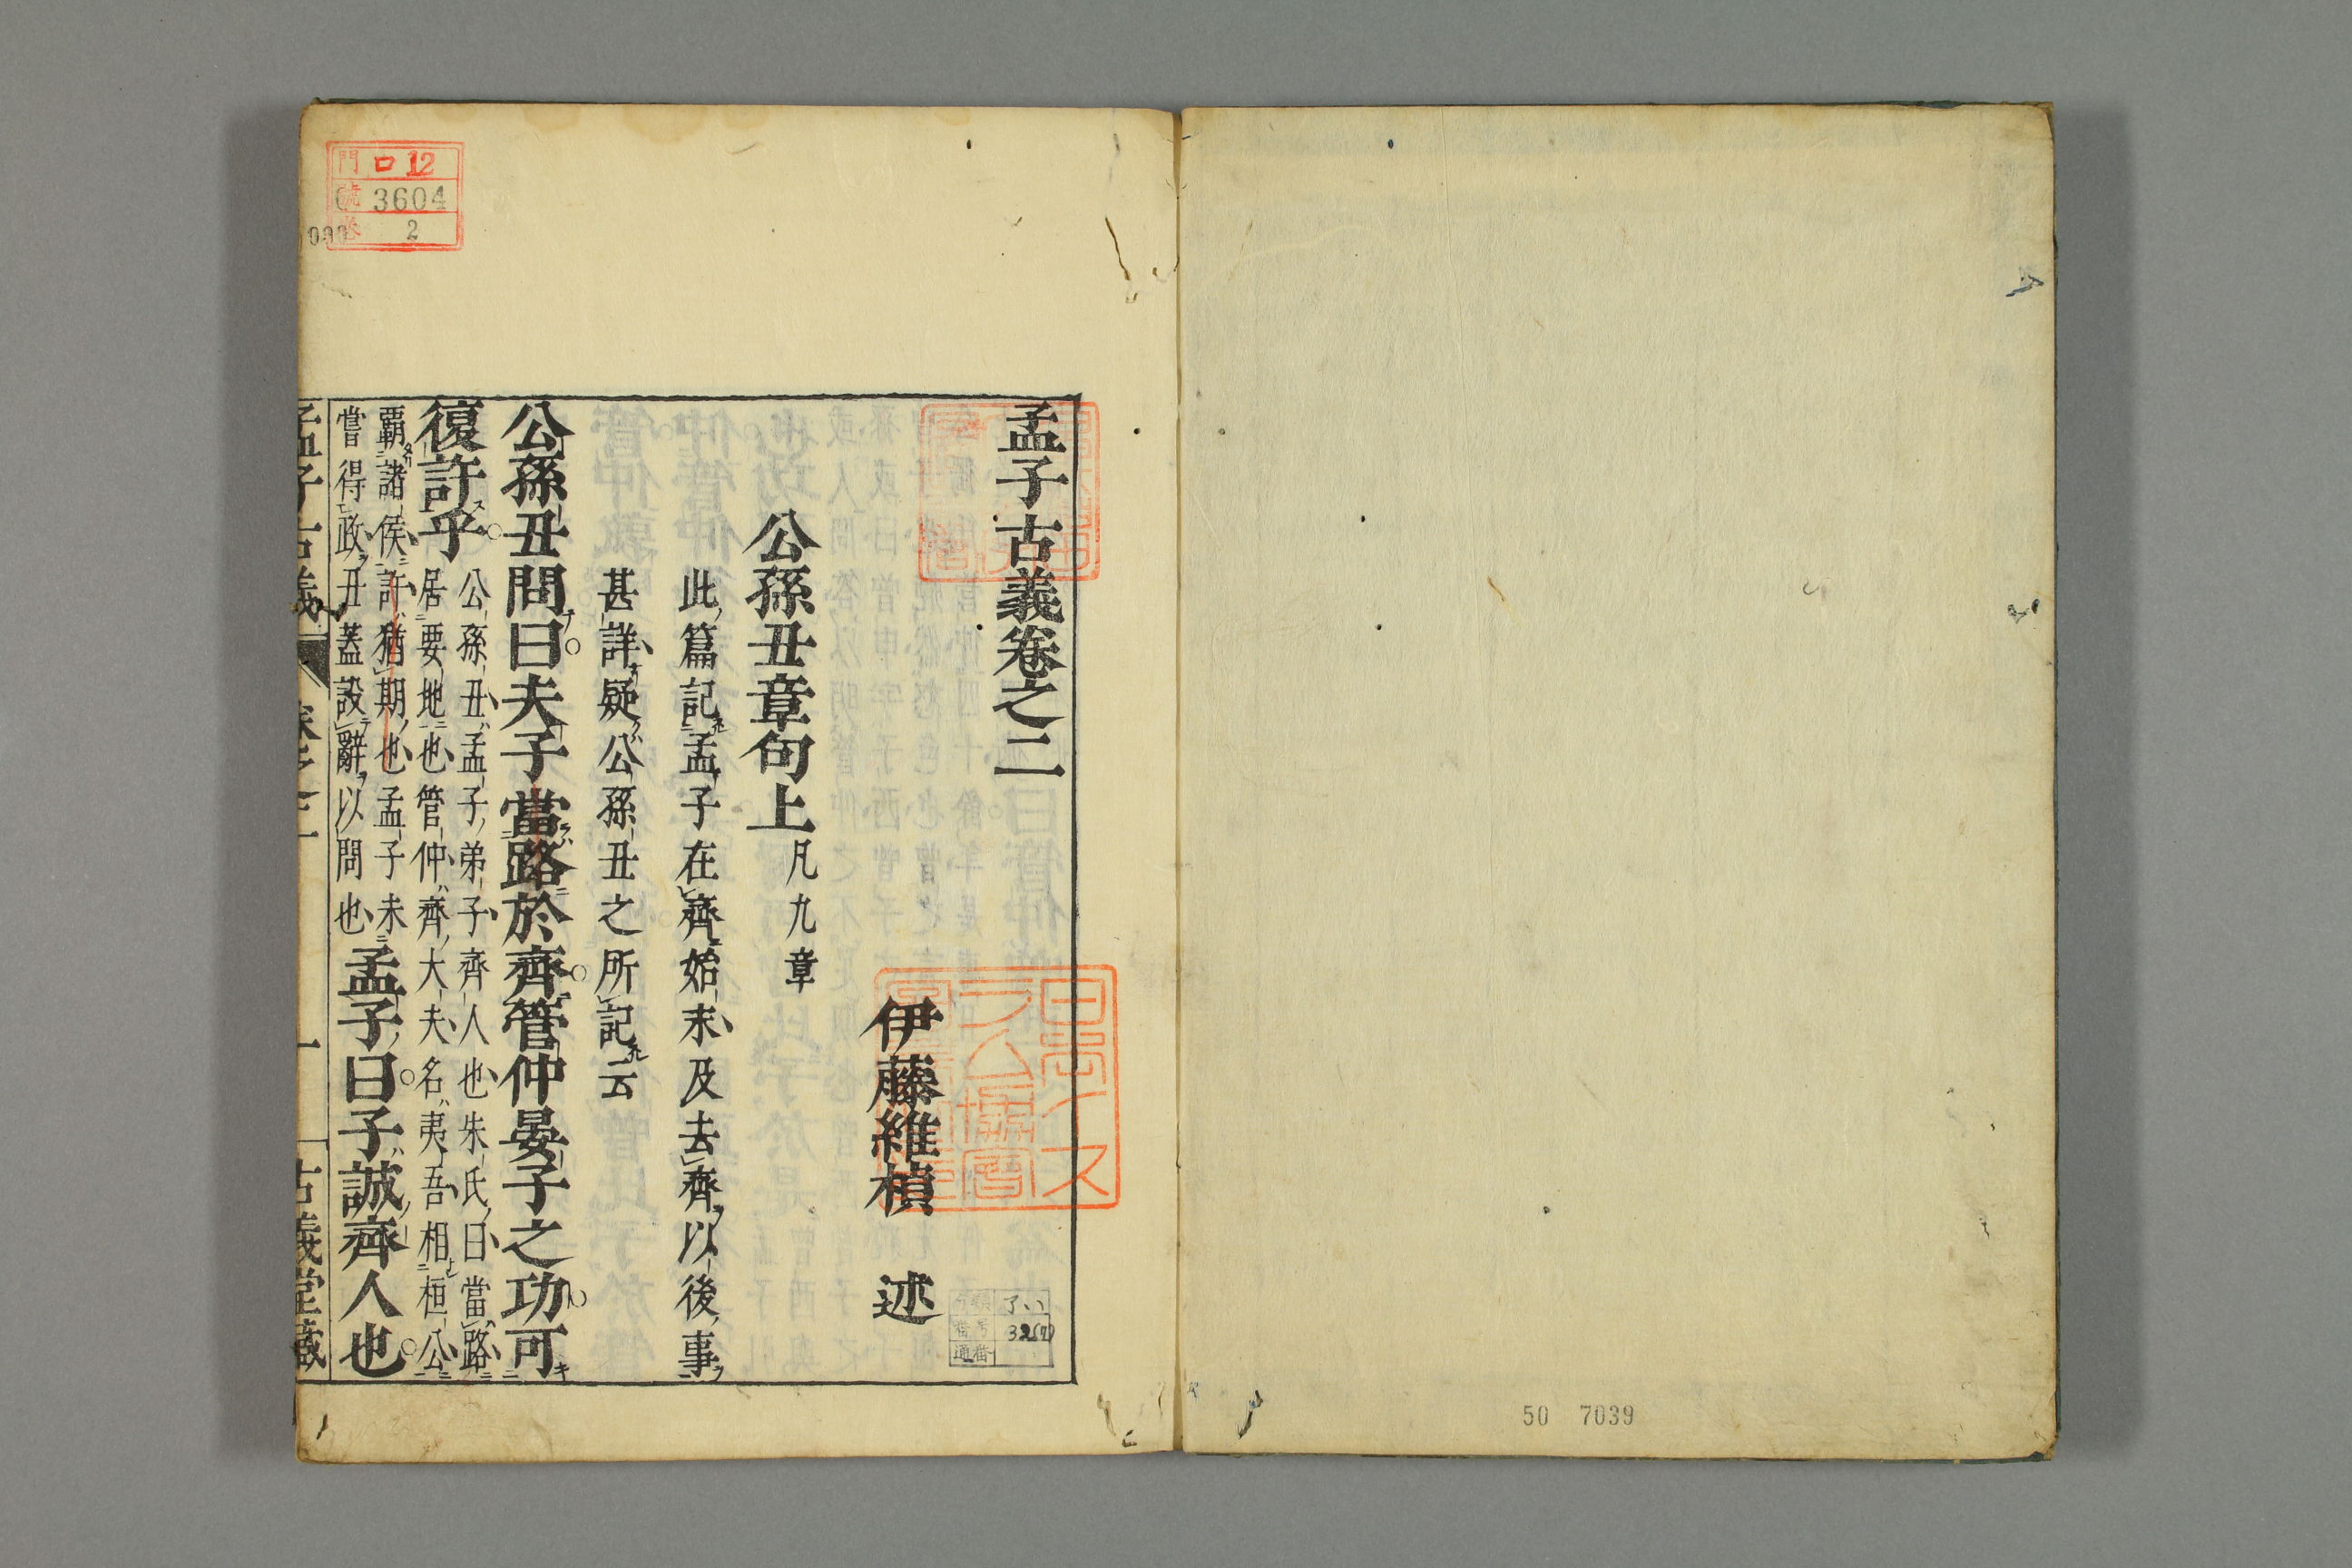 孟子古義卷之二
伊藤維楨 述
公孫丑章句上 凡九章
此篇記孟子在齊始末及去齊以後事
甚詳疑公孫丑之所記云
公孫丑問曰夫子當路於齊管仲晏子之功可
復許乎
公孫丑孟子弟子齊人也朱氏曰當路
居要地也管仲齊大夫名夷吾相桓公
覇諸侯許猶期也孟子未
嘗得政丑蓋設辭以問也
孟子曰子誠齊人也
孟子古義 卷之二 一 古義堂藏
門 口12
號 3604
卷 2
了八
32(1)
通番
50 7039